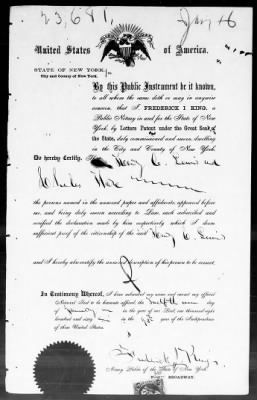 23,681
United States of America.
STATE OF NEW YORK,
City and County of New York.
By this Public Instrument be it known,
to all whom the same doth or may in anywise
concern, that I, FREDERICK I. KING, a
Public Notary in and for the State of New
York, by Letters Patent under the Great Seal of
the State, duly commissioned and sworn, dwelling
in the City and County of New York,
Do hereby Certify, Henry C. Lewis and
Charles
the persons named in the annexed paper and affidavits, appeared before
me, and being duly sworn according to Law, each subscribed and
verified the declaration made by him respectively which I deem
sufficient proof of the citizenship of the said Henry C. Lewis
and I hereby also certify the description of his person to be correct.
In Testimony Whereof, I have subscribed my name and caused my official
Notarial Seal to be hereunto affixed, the day
of January in the year of our Lord, one thousand eight
hundred and sixty in the 90th year of the Independence
of these United States.
Frederick I. King
Notary Public of the State of New York
BROADWAY.